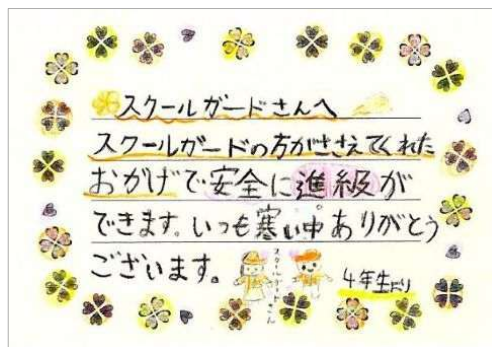 スクールガードさんへ
スクールガードの方がささえてくれた
おかげで安全に進級が
できます。いつも寒い中ありがとう
ございます。
スクールガードさん
4年生より